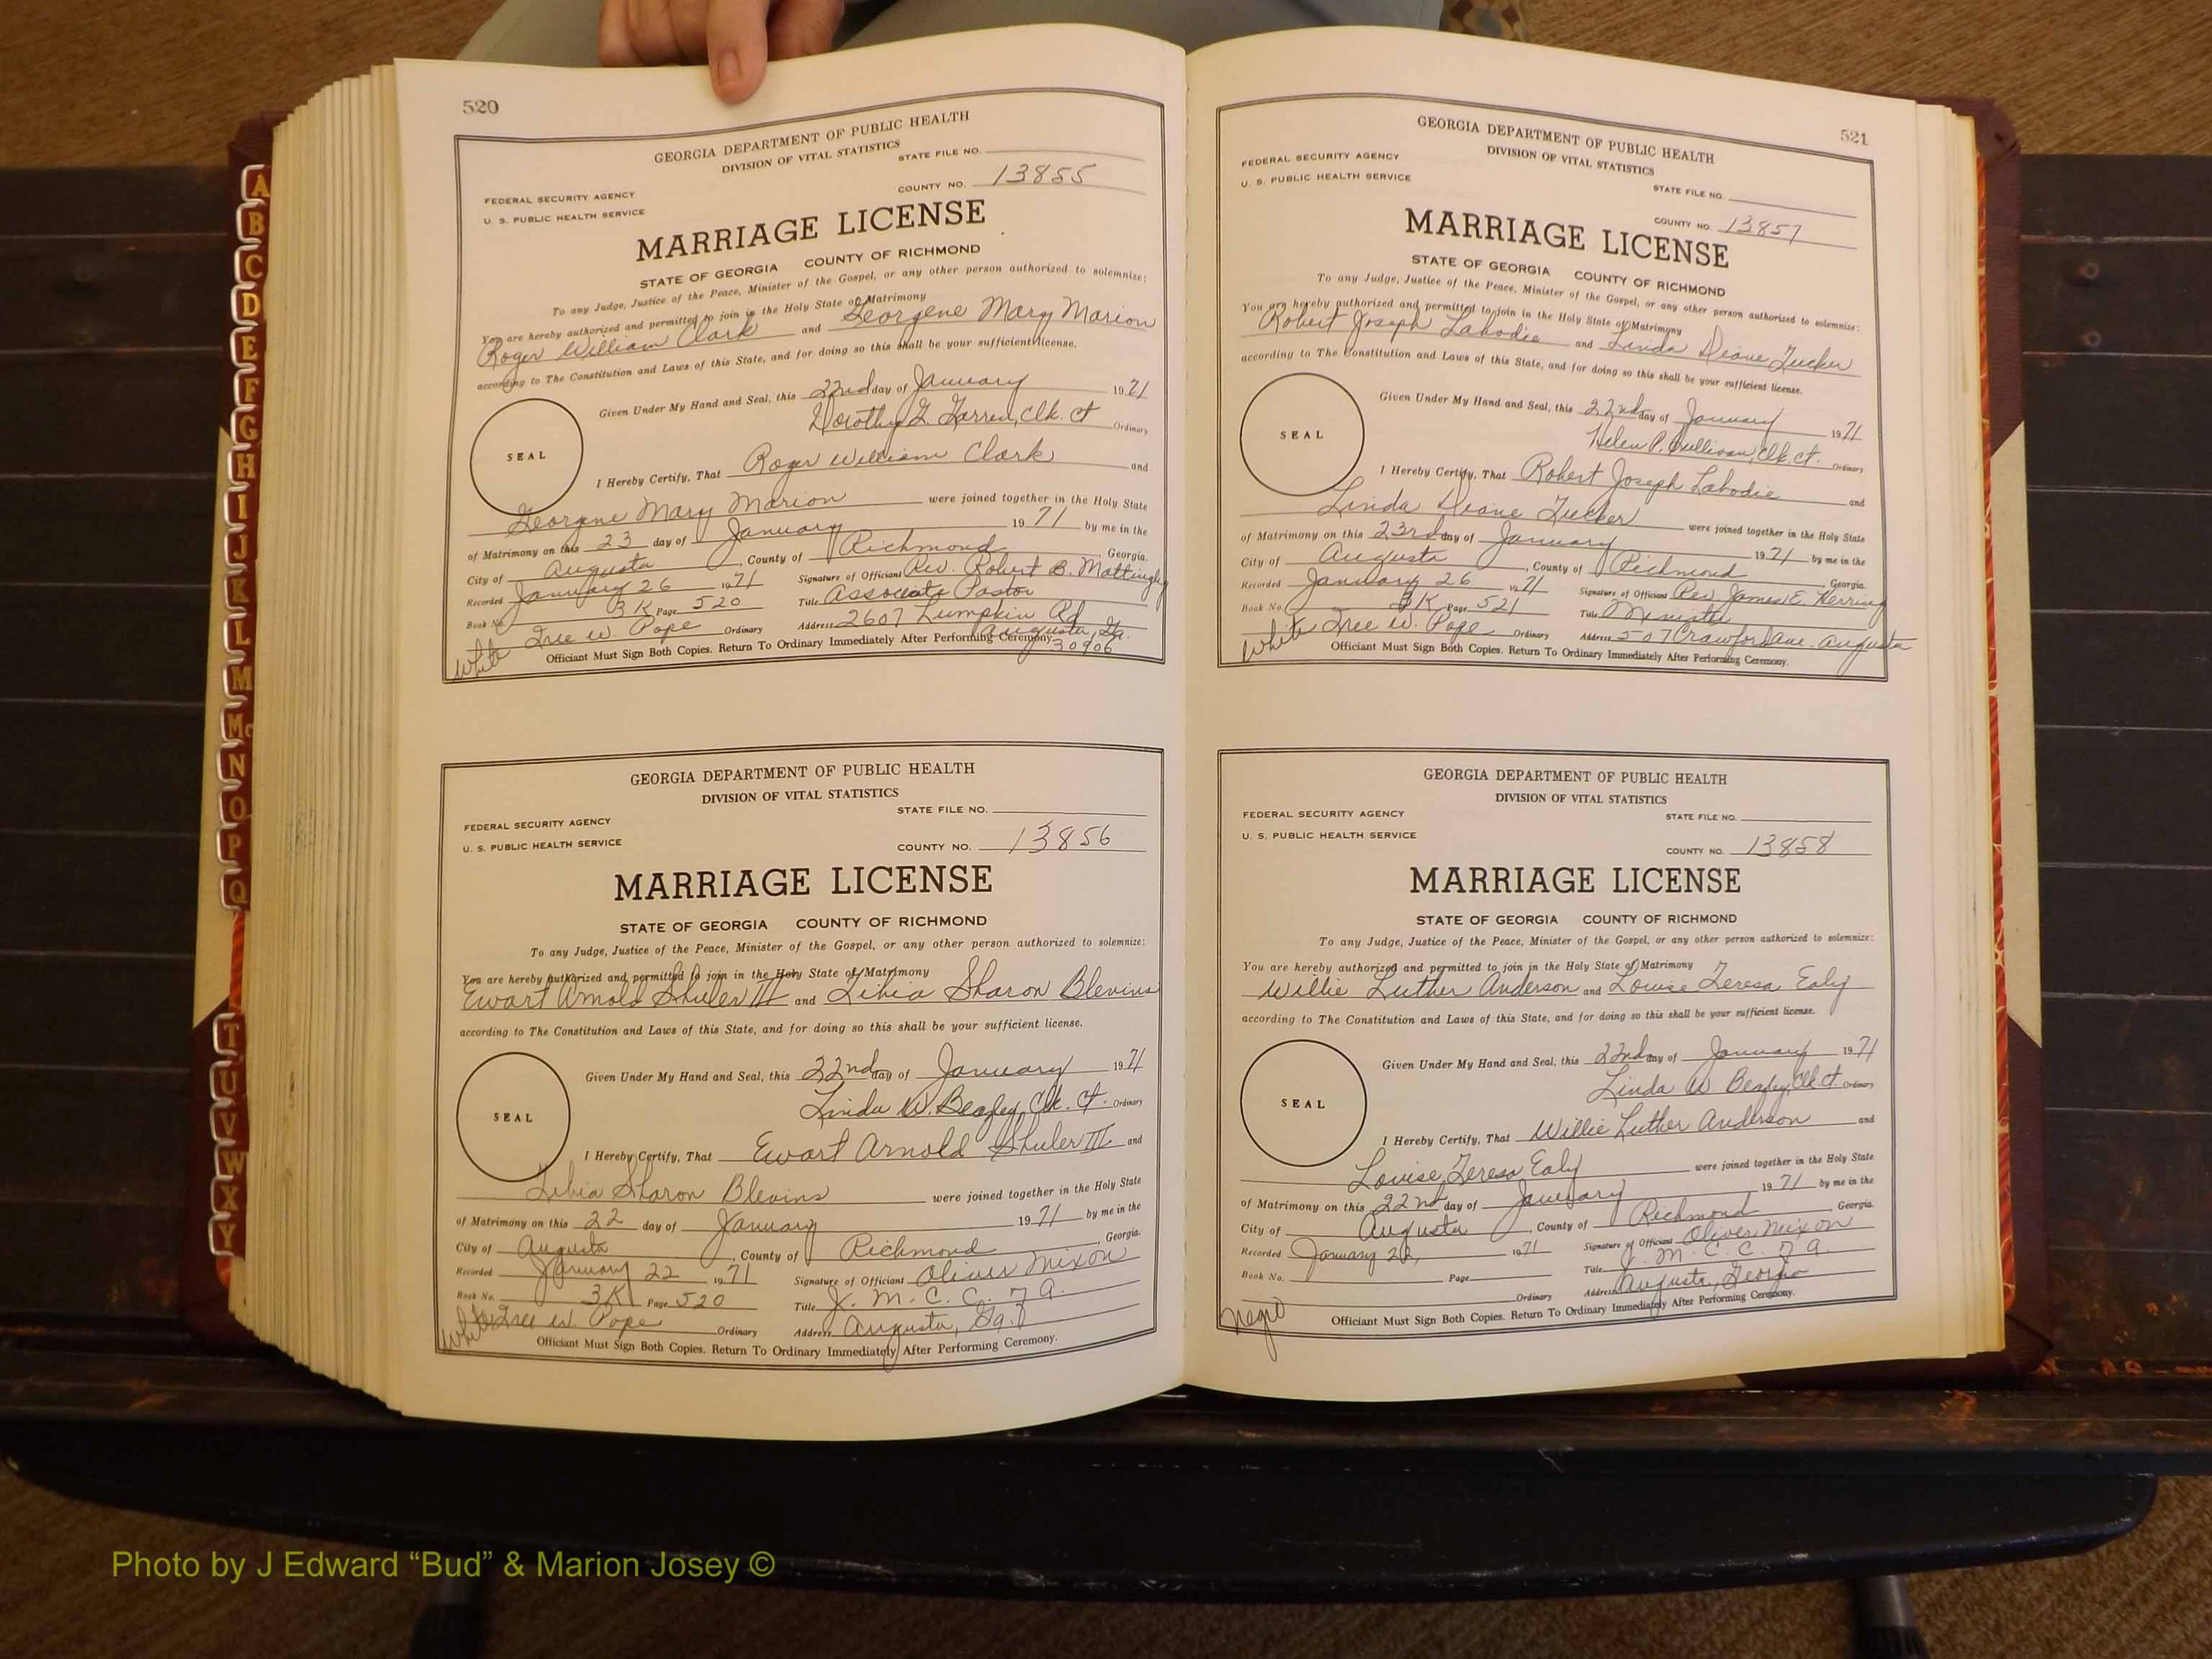 520
GEORGIA DEPARTMENT OF PUBLIC HEALTH
DIVISION OF VITAL STATISTICS
STATE FILE NO.
FEDERAL SECURITY AGENCY
U. S. PUBLIC HEALTH SERVICE
COUNTY NO. 13855
MARRIAGE LICENSE
STATE OF GEORGIA COUNTY OF RICHMOND
To any Judge, Justice of the Peace, Minister of the Gospel, or any other person authorized to solemnize:
You are hereby authorized and permitted to join in the Holy State of Matrimony
Roger William Clark and Georgene Mary Marion
according to The Constitution and Laws of this State, and for doing so this shall be your sufficient license.
Given Under My Hand and Seal, this 22nd day of January 1971
Dorothy Clk. Ct Ordinary
SEAL
I Hereby Certify, That Roger William Clark and
Georgene Mary Marion were joined together in the Holy State
of Matrimony on this 23 day of January 1971 by me in the
City of Augusta, County of Richmond, Georgia.
Recorded January 26 1971 Signature of Officiant Rev. Robert B. Mattingly
Book No. 3K Page 520 Title Associate Pastor
Tree W. Pope Ordinary Address 2607 Lumpkin Rd
Augusta, Ga. 30906
White
Officiant Must Sign Both Copies. Return To Ordinary Immediately After Performing Ceremony.
GEORGIA DEPARTMENT OF PUBLIC HEALTH
DIVISION OF VITAL STATISTICS
STATE FILE NO.
FEDERAL SECURITY AGENCY
U. S. PUBLIC HEALTH SERVICE
COUNTY NO. 13856
MARRIAGE LICENSE
STATE OF GEORGIA COUNTY OF RICHMOND
To any Judge, Justice of the Peace, Minister of the Gospel, or any other person authorized to solemnize:
You are hereby authorized and permitted to join in the Holy State of Matrimony
Ewart Arnold Shuler III and Libia Sharon Blevins
according to The Constitution and Laws of this State, and for doing so this shall be your sufficient license.
Given Under My Hand and Seal, this 22nd day of January 1971
Linda W. Beazley, Clk. Ct. Ordinary
SEAL
I Hereby Certify, That Ewart Arnold Shuler III and
Libia Sharon Blevins were joined together in the Holy State
of Matrimony on this 22 day of January 1971 by me in the
City of Augusta, County of Richmond, Georgia.
Recorded January 22 1971 Signature of Officiant Oliver Mixon
Book No. 3K Page 520 Title J. M. C. C. 7 A.
White Tree W. Pope Ordinary Address Augusta, Ga.
Officiant Must Sign Both Copies. Return To Ordinary Immediately After Performing Ceremony.
521
GEORGIA DEPARTMENT OF PUBLIC HEALTH
DIVISION OF VITAL STATISTICS
FEDERAL SECURITY AGENCY
U. S. PUBLIC HEALTH SERVICE
STATE FILE NO.
COUNTY NO. 13857
MARRIAGE LICENSE
STATE OF GEORGIA COUNTY OF RICHMOND
To any Judge, Justice of the Peace, Minister of the Gospel, or any other person authorized to solemnize:
You are hereby authorized and permitted to join in the Holy State of Matrimony
Robert Joseph Labodie and Linda Diane Tucker
according to The Constitution and Laws of this State, and for doing so this shall be your sufficient license.
Given Under My Hand and Seal, this 22nd day of January 1971
Helen P. Sullivan, Clk. Ct. Ordinary
SEAL
I Hereby Certify, That Robert Joseph Labodie and
Linda Diane Tucker were joined together in the Holy State
of Matrimony on this 23rd day of January 1971 by me in the
City of Augusta, County of Richmond Georgia.
Recorded January 26 1971 Signature of Officiant Rev James E. Herring
Book No. 3K Page 521 Title Minister
White Tree W. Pope Ordinary Address 507 Crawford Ave. Augusta
Officiant Must Sign Both Copies. Return To Ordinary Immediately After Performing Ceremony.
GEORGIA DEPARTMENT OF PUBLIC HEALTH
DIVISION OF VITAL STATISTICS
FEDERAL SECURITY AGENCY
STATE FILE NO.
U. S. PUBLIC HEALTH SERVICE
COUNTY NO. 13858
MARRIAGE LICENSE
STATE OF GEORGIA COUNTY OF RICHMOND
To any Judge, Justice of the Peace, Minister of the Gospel, or any other person authorized to solemnize:
You are hereby authorized and permitted to join in the Holy State of Matrimony
Willie Luther Anderson and Louise Teresa Ealy
according to The Constitution and Laws of this State, and for doing so this shall be your sufficient license.
Given Under My Hand and Seal, this 22nd day of January 1971
Linda W. Beazley, Clk. Ct. Ordinary
SEAL
I Hereby Certify, That Willie Luther Anderson and
Louise Teresa Ealy were joined together in the Holy State
of Matrimony on this 22nd day of January 1971 by me in the
City of Augusta, County of Richmond Georgia.
Recorded January 22, 1971 Signature of Officiant Oliver Mixon
Book No. Page Title J. M. C. C. 7 A.
Ordinary Address Augusta, Georgia
Negro
Officiant Must Sign Both Copies. Return To Ordinary Immediately After Performing Ceremony.
A
B
C
D
E
F
G
H
I
J
K
L
M
Mc
N
O
P
Q
T
U
V
W
X
Y
Photo by J Edward “Bud” & Marion Josey ©